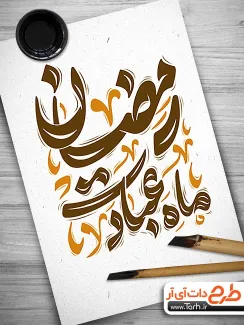 رمضان
ماه عبادت
طرح دات آی آر
www.Tarh.ir